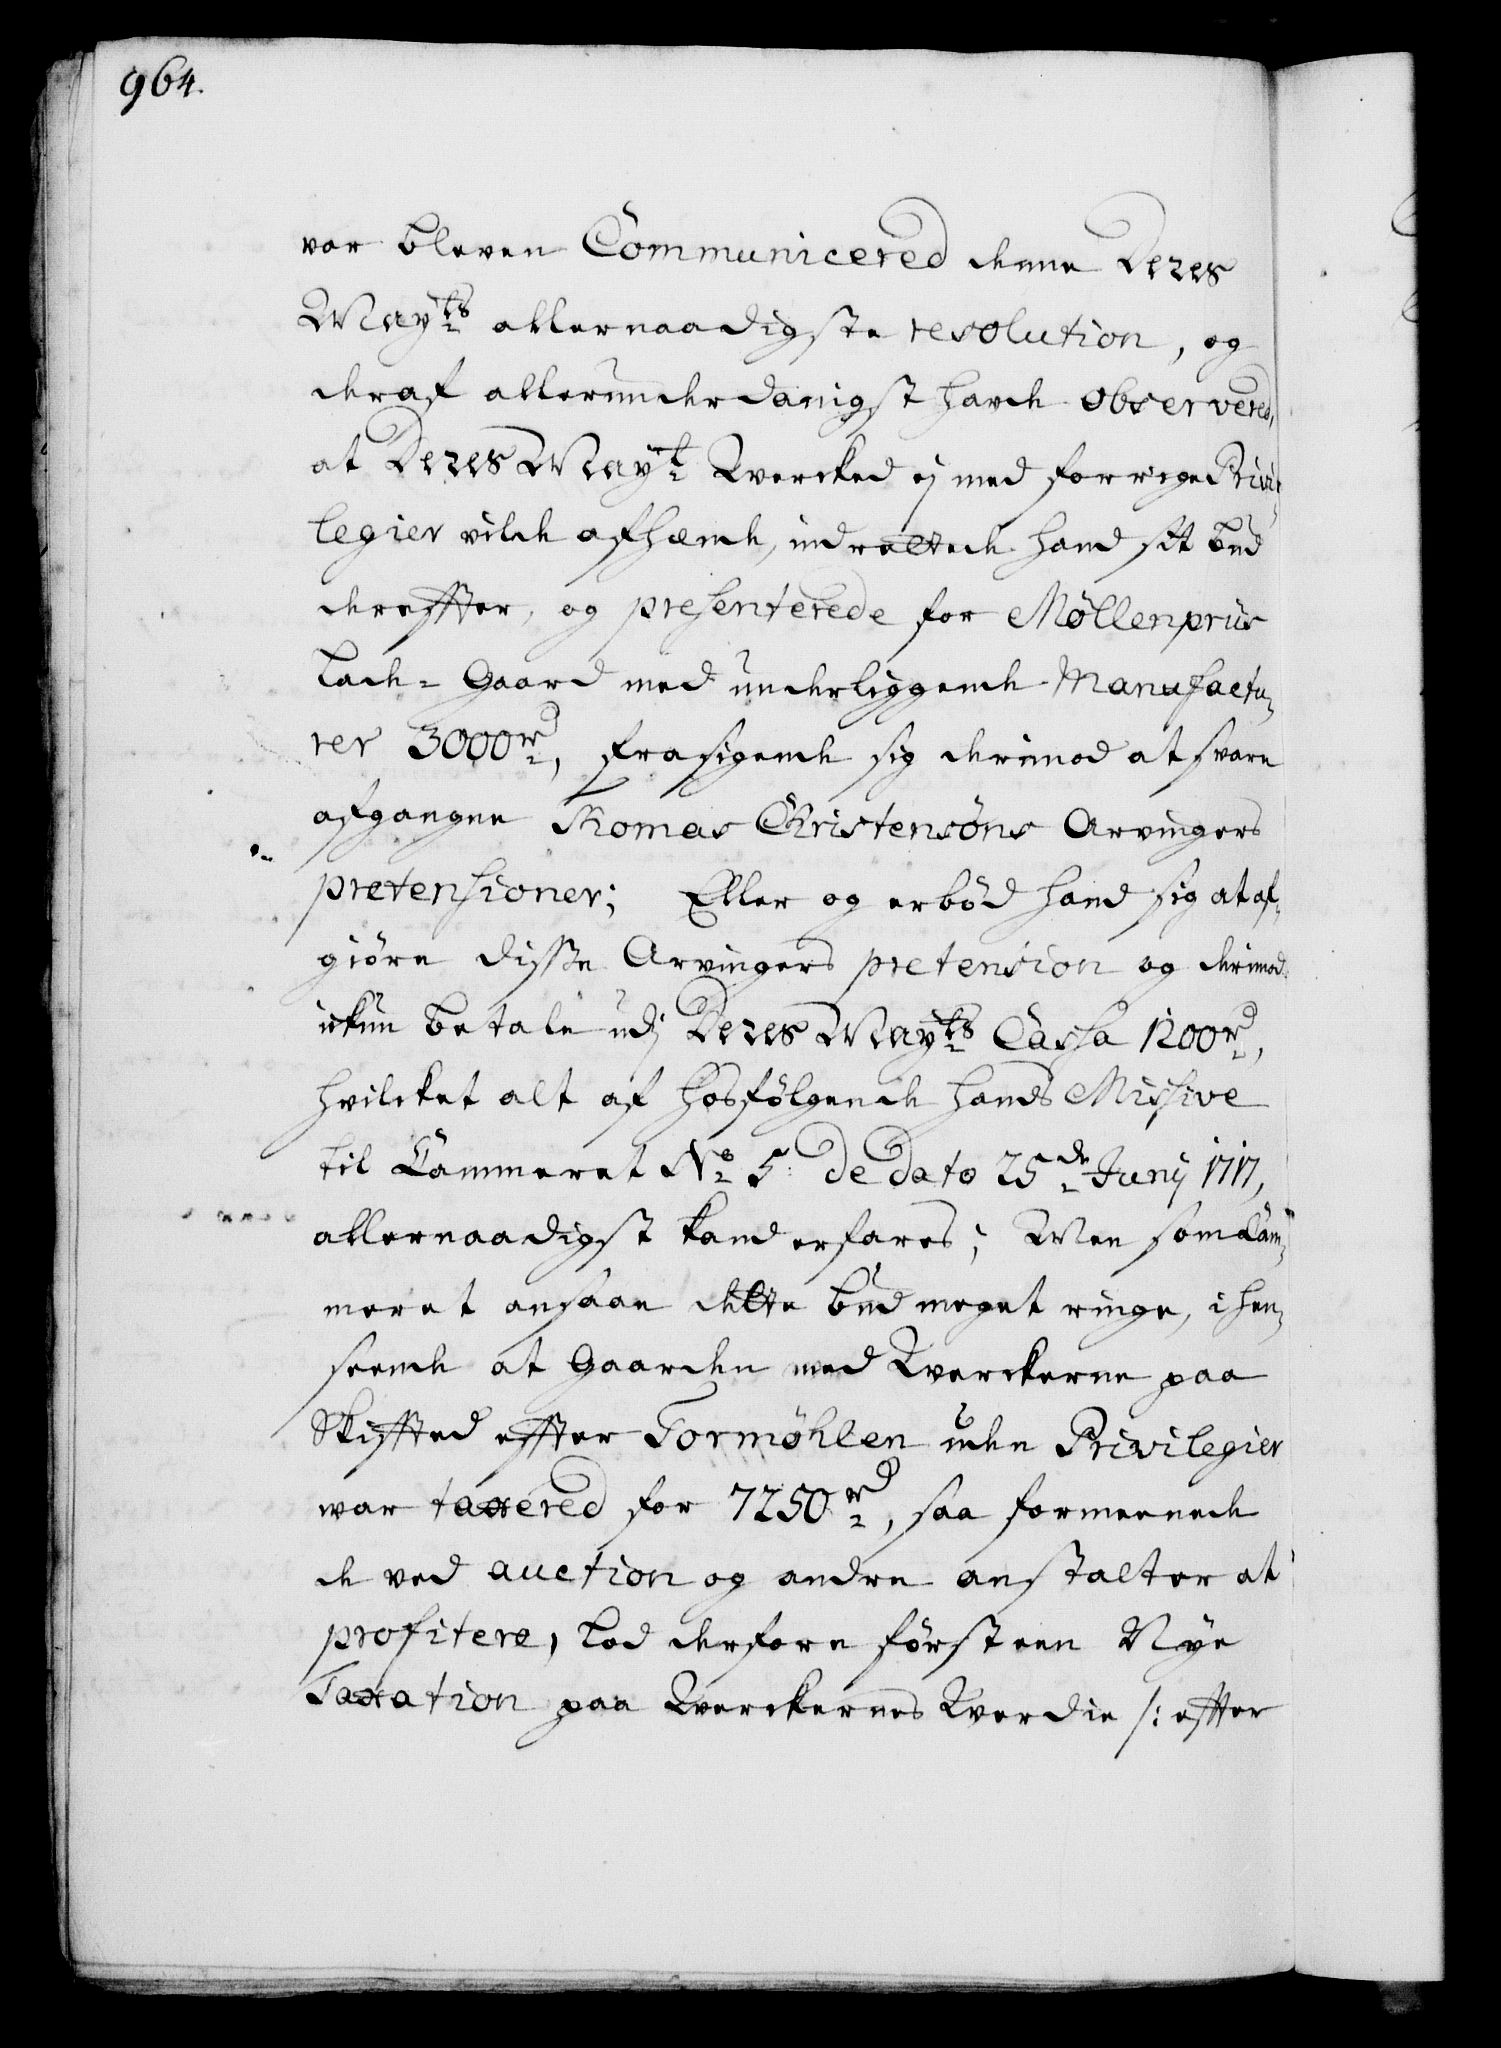 964.
var bleven Communicered denne Deres
May^ts allernaadigste resolution, og
deraf allerunderdanigst hafde observered,
at Deres May^t Wercked ej med forrige Privi-
legier vilde afhænde, indrættede hand sit bud
dereffter, og præsenterede for Møllenpriis
Lade-Gaard med underliggende Manufactu-
rer 3000 rd, frasigende sig derimod at svare
afgangne Thomas Christensöns Arvingers
prætensioner; Eller og erböd hand sig at af-
giöre disse Arvingers pretension og derimod
ickun betale udj Deres May^ts Cassa 1200 rd,
hvilcket alt af hosfölgende hands Missive
til Cammeret N^o 5: de dato 25^de Junij 1717,
allernaadigst kand erfares; Men som Cam-
meret ansaae dette bud meget ringe, i hen-
seende at Gaarden med Werckerne paa
Skiffted effter Tormöhlen uden Privilegier
war taxered for 7250 rd, saa formeenede
de ved auction og andre anstalter at
profitere, lod derfore först een Nye
Taxation paa Werckernes Werdie /: effter